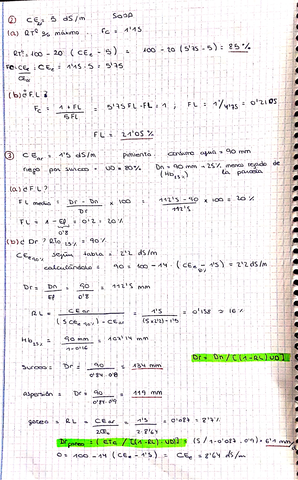 ② CEa = 5 dS/m SOJA
(a) RTº 25 máximo. Fc = 1'15
RTº = 100 - 20 (CEe - 5) = 100 - 20 (5'75 - 5) = 85 %
Fc = CEe/CEa : CEe = 1'15 · 5 = 5'75
(b) ¿FL?
Fc = 1 + FL / 5FL = 5'75 FL - FL = 1 ; FL = 1/4'75 = 0'2105
FL = 21'05 %
③ CEar = 1'5 dS/m pimiento. consumo agua = 90 mm
riego por surcos - UD = 80% Dn = 90 mm = 25% menos regado de la parcela
(Hb25%)
(a) ¿FL?
FL media = Dr - Dn / Dr × 100 = 112'5 - 90 / 112'5 × 100 = 20 %
FL = 1 - Ef = 0'2 = 20 %
0'8
(b) ¿Dr? RTo = 90 %
CEe90% según tabla = 2'2 dS/m
calculándolo = 90 = 100 - 14 · (CEe - 1'5) = 2'2 dS/m
Dr = Dn / Ef = 90 / 0'8 = 112'5 mm
RL = CEar / (5 CEe 90%) - CEar = 1'5 / (5 x 2'2) - 1'5 = 0'158 ≈ 16 %
Hb25% = 90 mm / 1 - 0'16 = 107'14 mm
Dr = Dn / [(1-RL) UD]
Surcos = Dr = 90 / 0'84 · 0'8 = 134 mm
Aspersión = Dr = 90 / 0'84 · 0'9 = 119 mm
goteo = RL = CEar / 2CEe = 1'5 / 2 · 8'64 = 0'087 = 8'7 %
Dr goteo = (ETo / [(1-RL) · UD]) = (5 / 1 - 0'087 · 0'9) = 6'1 mm
0 = 100 - 14 (CEe - 1'5) = CEe = 8'64 dS/m